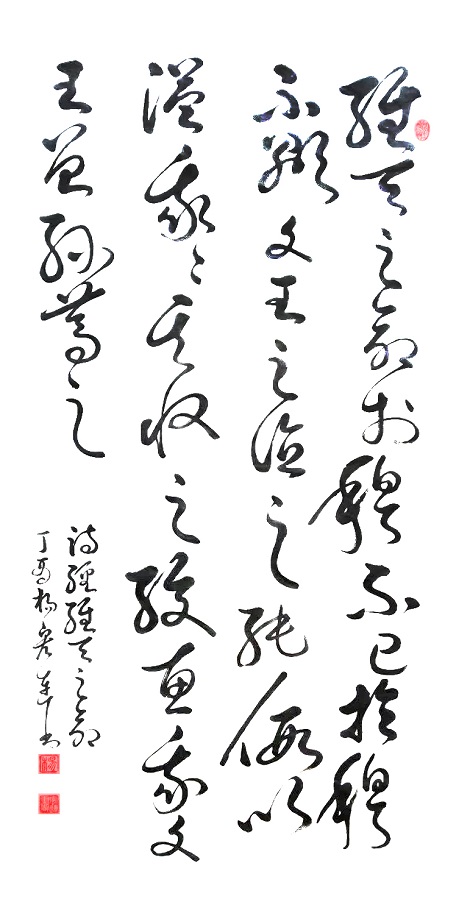 維天之命於穆不已於穆
不顯文王之德之純假以
溢我々其收之駿惠我文
王曾孫篤之
詩經維天之命